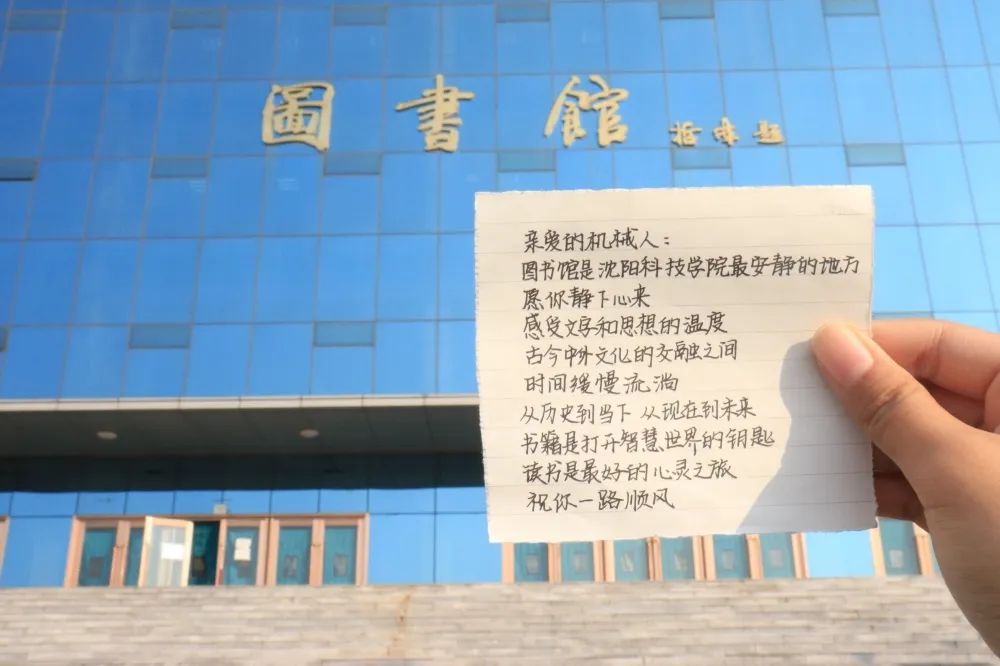 圖書館
亲爱的机械人：
图书馆是沈阳科技学院最安静的地方
愿你静下心来
感受文字和思想的温度
古今中外文化的交融之间
时间缓慢流淌
从历史到当下 从现在到未来
书籍是打开智慧世界的钥匙
读书是最好的心灵之旅
祝你一路顺风